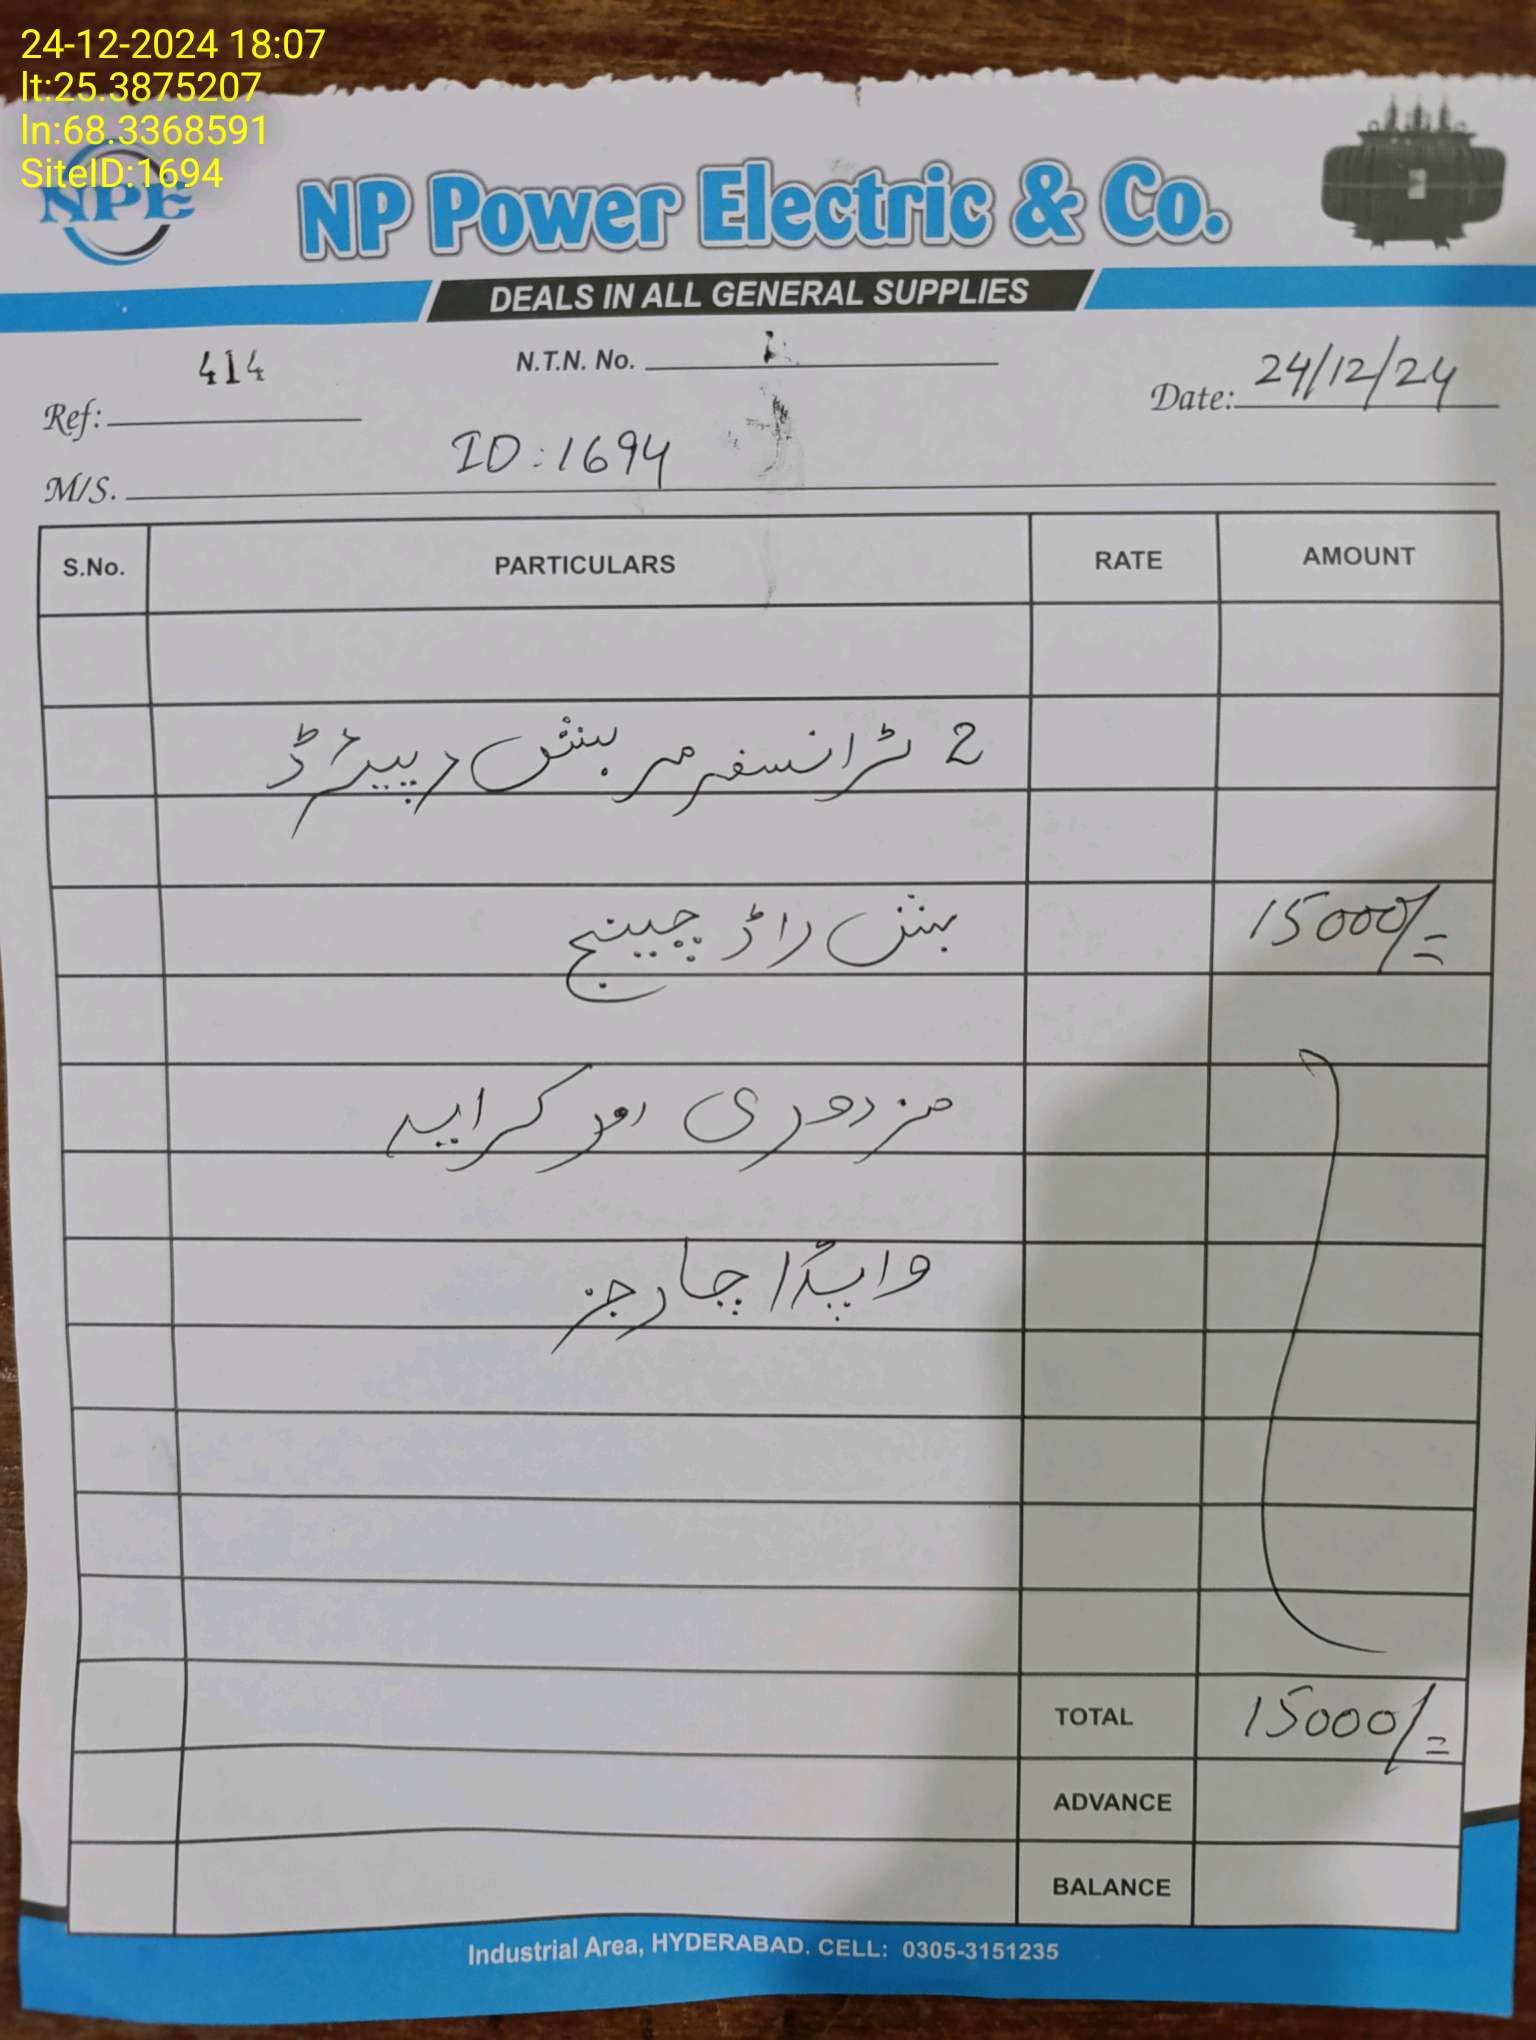 24-12-2024 18:07
lt:25.3875207
ln:68.3368591
SiteID:1694
NPE
NP Power Electric & Co.
DEALS IN ALL GENERAL SUPPLIES
Ref: 414
N.T.N. No.
Date: 24/12/24
M/S. ID:1694
S.No. PARTICULARS RATE AMOUNT
2 ٹرانسفرمر بش رپیئرڈ
بش راڈ چینج 15000/=
مزدوری اور کرایہ
واپڈا چارجز
TOTAL 15000/=
ADVANCE
BALANCE
Industrial Area, HYDERABAD. CELL: 0305-3151235